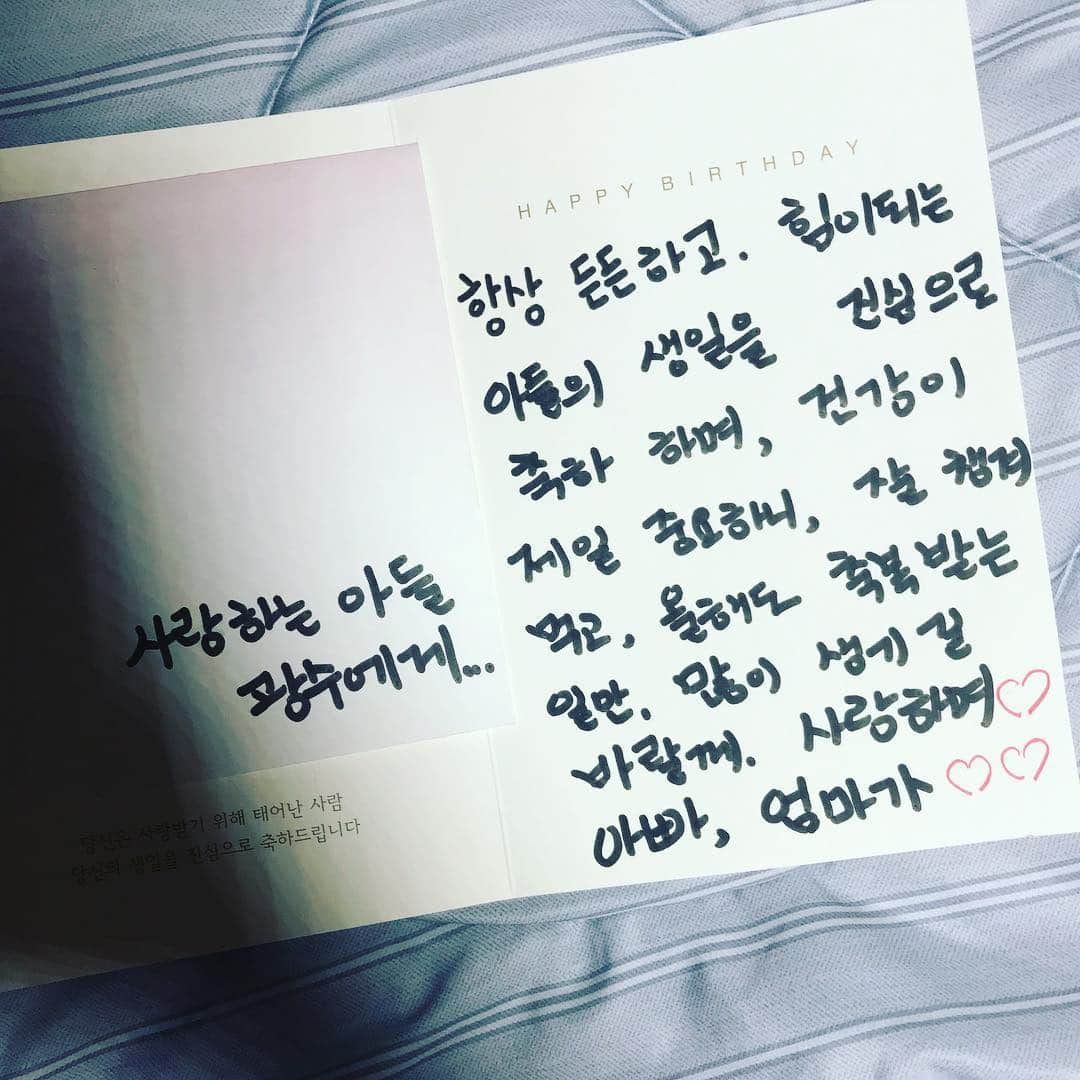 사랑하는 아들
광수에게...
당신은 사랑받기 위해 태어난 사람
당신의 생일을 진심으로 축하드립니다
HAPPY BIRTHDAY
항상 든든하고. 힘이되는
아들의 생일을 진심으로
축하 하며, 건강이
제일 중요하니, 잘 챙겨
먹고, 올해도 축복받는
일만, 많이 생기길
바랄께. 사랑하며♡
아빠, 엄마가 ♡♡